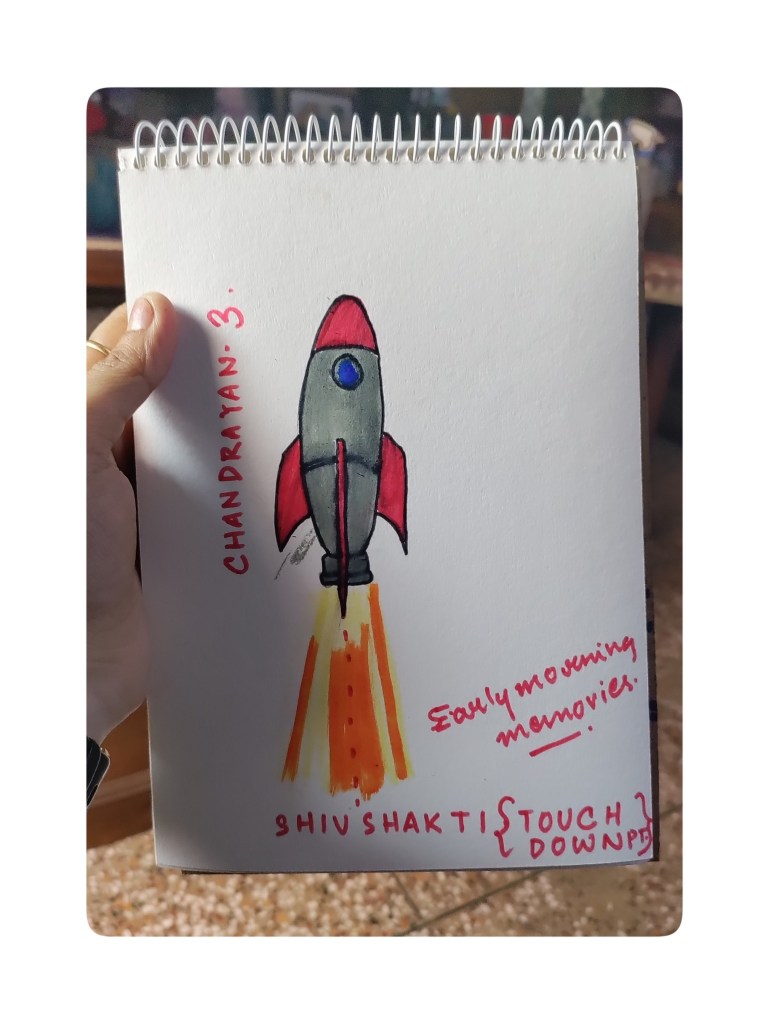 CHANDRAYAN. 3.
Early morning
memories.
SHIV'SHAKTI {TOUCH
DOWN PT.}